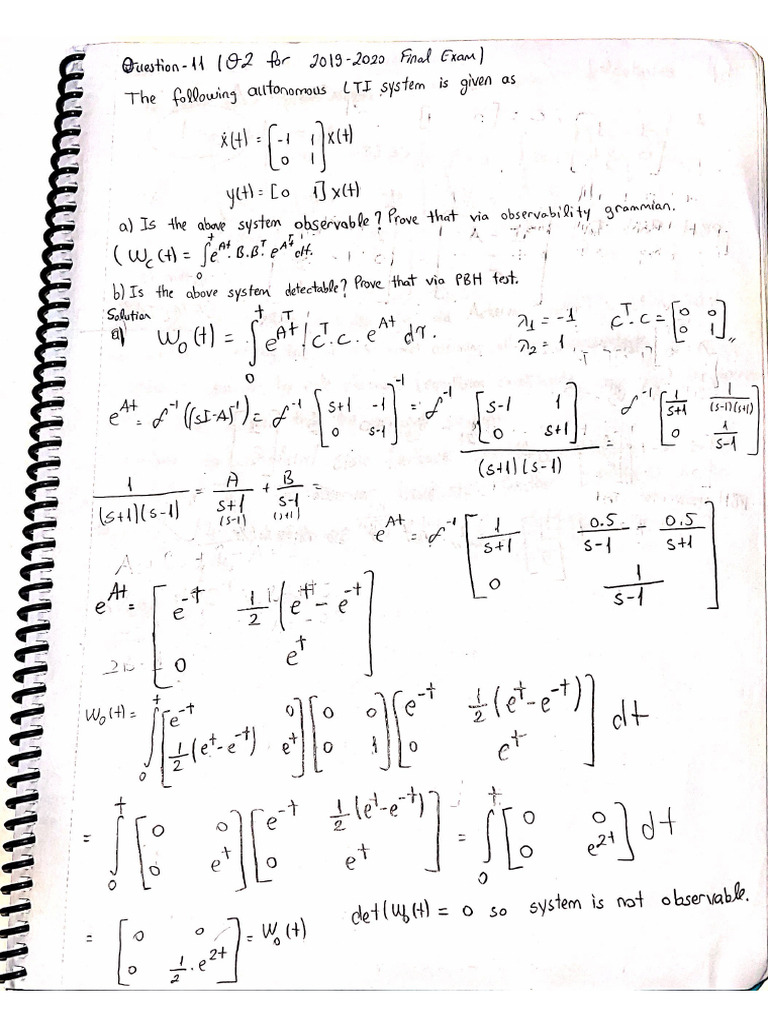 Question-11 (Q2 for 2019-2020 Final Exam)
The following autonomous LTI system is given as
ẋ(t) = [-1 1; 0 1] x(t)
y(t) = [0 1] x(t)
a) Is the above system observable? Prove that via observability grammian.
(W_c(t) = ∫_0^t e^{At}.B.B^T e^{A^T t} dt.
b) Is the above system detectable? Prove that via PBH test.
Solution
a) W_o(t) = ∫_0^t e^{A^T t} C^T.C.e^{At} dτ. λ_1 = -1 λ_2 = 1 C^T.C = [0 0; 0 1]
e^{At} = ℒ^{-1}((sI-A)^{-1}) = ℒ^{-1} [s+1 -1; 0 s-1]^{-1} = ℒ^{-1} [s-1 1; 0 s+1] / (s+1)(s-1) = ℒ^{-1} [1/(s+1) 1/((s-1)(s+1)); 0 1/(s-1)]
1/((s+1)(s-1)) = A/(s+1) + B/(s-1) =
(s-1) (s+1)
e^{At} = ℒ^{-1} [1/(s+1) 0.5/(s-1) - 0.5/(s+1); 0 1/(s-1)]
e^{At} = [e^{-t} 1/2 (e^t - e^{-t}); 0 e^t]
W_o(t) = ∫_0^t [e^{-t} 0; 1/2 (e^t - e^{-t}) e^t] [0 0; 0 1] [e^{-t} 1/2 (e^t - e^{-t}); 0 e^t] dt
= ∫_0^t [0 0; 0 e^t] [e^{-t} 1/2 (e^t - e^{-t}); 0 e^t] = ∫_0^t [0 0; 0 e^{2t}] dt
= [0 0; 0 1/2 . e^{2t}] = W_o(t) det(W_o(t) = 0 so system is not observable.